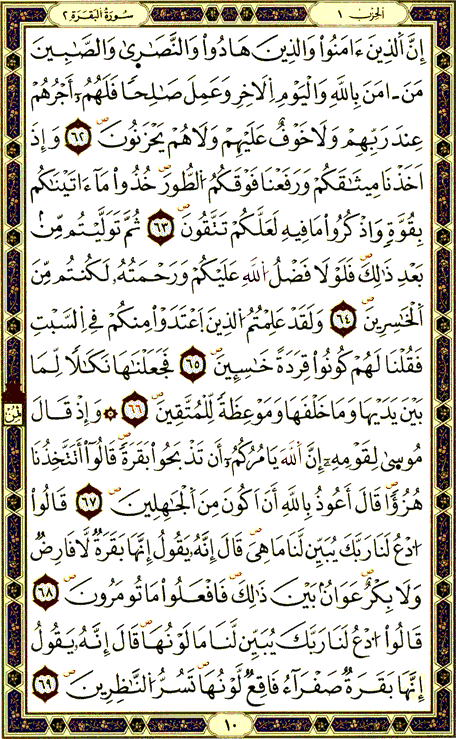 الحِزْب ١ سُورَةُ البَقَرَة ٢
إِنَّ اَ۬لذِينَ ءَامَنُواْ وَالذِينَ هَادُواْ وَالنَّصَٰرِىٰ وَالصَّٰبِينَ
مَنَ ـ امَنَ بِاللَّهِ وَالْيَوْمِ اِ۬لَاخِرِ وَعَمِلَ صَٰلِحاً فَلَهُمُۥٓ أَجْرُهُمْ
عِندَ رَبِّهِمْ وَلَا خَوْفٌ عَلَيْهِمْ وَلَا هُمْ يَحْزَنُونَۖ ٦٢ وَإِذَ
اَخَذْنَا مِيثَٰقَكُمْ وَرَفَعْنَا فَوْقَكُمُ اُ۬لطُّورَۖ خُذُواْ مَآ ءَاتَيْنَٰكُم
بِقُوَّةٖ وَاذْكُرُواْ مَا فِيهِ لَعَلَّكُمْ تَتَّقُونَۖ ٦٣ ثُمَّ تَوَلَّيْتُم مِّنۢ
بَعْدِ ذَٰلِكَۖ فَلَوْلَا فَضْلُ اُ۬للَّهِ عَلَيْكُمْ وَرَحْمَتُهُۥ لَكُنتُم مِّنَ
اَ۬لْخَٰسِرِينَۖ ٦٤ وَلَقَدْ عَلِمْتُمُ اُ۬لذِينَ اَ۪عْتَدَوْاْ مِنكُمْ فِے اِ۬لسَّبْتِ
فَقُلْنَا لَهُمْ كُونُواْ قِرَدَةً خَٰسِـِٕينَۖ ٦٥ فَجَعَلْنَٰهَا نَكَٰلاً لِّمَا
بَيْنَ يَدَيْهَا وَمَا خَلْفَهَا وَمَوْعِظَةً لِّلْمُتَّقِينَۖ ٦٦ ۞ وَإِذْ قَالَ
مُوس۪يٰ لِقَوْمِهِۦٓ إِنَّ اَ۬للَّهَ يَامُرُكُمُۥٓ أَن تَذْبَحُواْ بَقَرَةٗۖ قَالُوٓاْ أَتَتَّخِذُنَا
هُزُؤاٗۖ قَالَ أَعُوذُ بِاللَّهِ أَنَ اَكُونَ مِنَ اَ۬لْجَٰهِلِينَۖ ٦٧ قَالُواْ
اُ۟دْعُ لَنَا رَبَّكَ يُبَيِّن لَّنَا مَا هِىَۖ قَالَ إِنَّهُۥ يَقُولُ إِنَّهَا بَقَرَةٞ لَّا فَارِضٞ
وَلَا بِكْرٌ عَوَانُۢ بَيْنَ ذَٰلِكَۖ فَافْعَلُواْ مَا تُومَرُونَۖ ٦٨
قَالُواْ اُ۟دْعُ لَنَا رَبَّكَ يُبَيِّن لَّنَا مَا لَوْنُهَاۖ قَالَ إِنَّهُۥ يَقُولُ
إِنَّهَا بَقَرَةٞ صَفْرَآءُ فَاقِعٞ لَّوْنُهَاۖ تَسُرُّ اُ۬لنَّٰظِرِينَۖ ٦٩
١٠